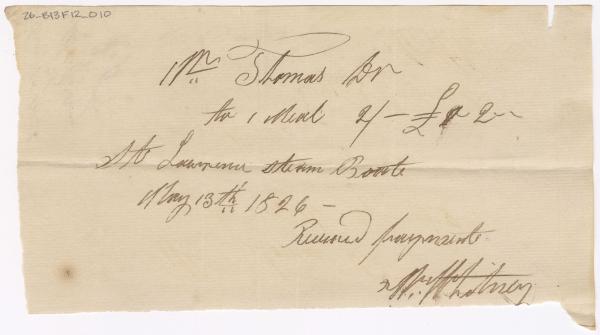 26-B13F12_010
Mr. Thomas Dr
to 1 Meal 2/ — £ 2
St Lawrence Steam Boate
May 13th 1826 —
Received payment
Whitney